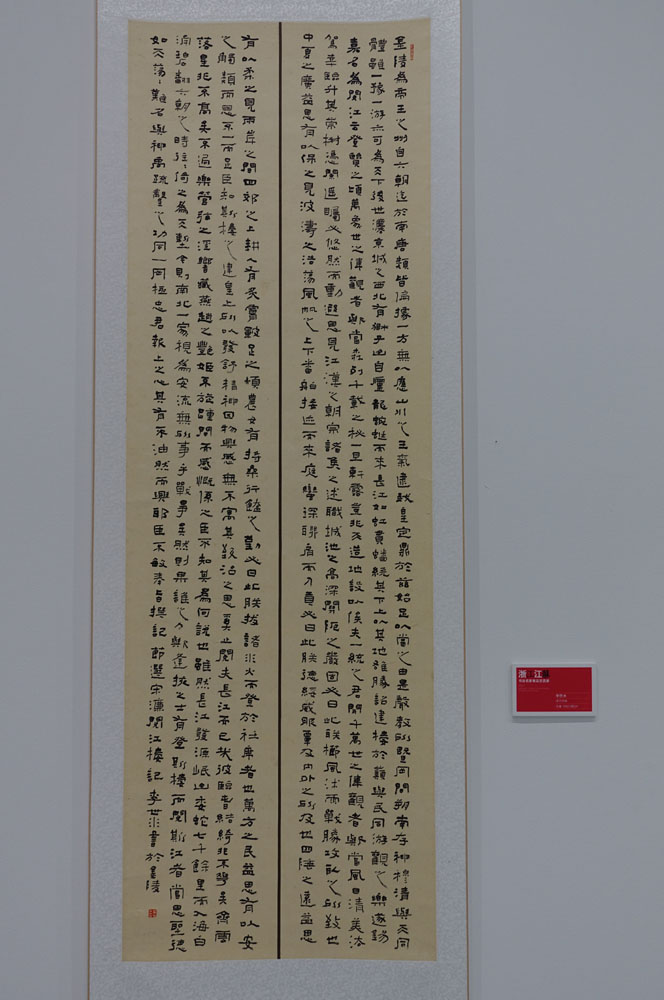 金陵為帝王之州自六朝迄於南唐類皆偏據一方無以應山川之王氣逮我皇定鼎於茲始足以當之由是聲教所暨罔間朔南存神穆清與天同
體雖一豫一游亦可為天下後世灋京城之西北有獅子山自盧龍蜿蜒而來長江如虹貫蟠繞其下上以其地雄勝詔建樓於巔與民同游觀之樂遂錫
嘉名為閱江云登覽之頃萬象世之偉觀者歟當森列千載之秘一旦軒露豈非天造地設以俟夫一統之君開千萬世之偉觀者歟當風日清美法
駕幸臨升其崇樹憑闌遙矚必悠然而動遐思見江漢之朝宗諸侯之述職城池之高深關阨之嚴固必曰此朕櫛風沐雨戰勝攻取之所致也
中夏之廣益思有以保之見波濤之浩蕩風帆之上下番舶接迹而來庭蠻琛聯肩而入貢必曰此朕德綏威服覃及內外之所及也四陲之遠益思
有以柔之見兩岸之間四郊之上耕人有炙膚皸足之煩農女有捋桑行饁之勤必曰此朕拔諸水火而登於衽席者也萬方之民益思有以安
之觸類而思不一而足臣知斯樓之建皇上所以發舒精神因物興感無不寓其致治之思奚止閱夫長江而已哉彼臨春結綺非不華矣齊雲
落星非不高矣不過樂管弦之淫響藏燕趙之豔姬不旋踵間而感慨係之臣不知其為何說也雖然長江發源岷山委蛇七千餘里而入海白
涌碧翻六朝之時往〻倚之為天塹今則南北一家視為安流無所事乎戰爭矣然則果誰之力歟逢掖之士有登斯樓而閱斯江者當思聖德
如天蕩〻難名與神禹疏鑿之功同一罔極忠君報上之心其有不油然而興耶臣不敏奉旨撰記 節選宋濂閱江樓記 李世 書於金陵
浙江